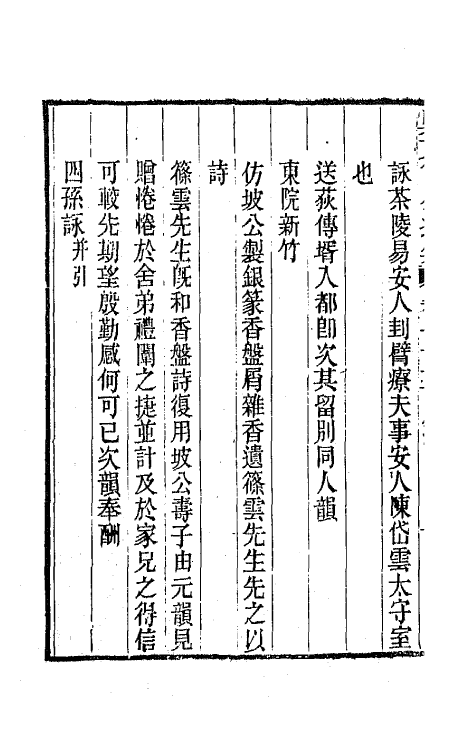 詠茶陵易安人刲臂療夫事安人陳岱雲太守室
也
送荻傳壻入都卽次其留別同人韻
東院新竹
仿坡公製銀篆香盤屑雜香遺篠雲先生先之以
詩
篠雲先生旣和香盤詩復用坡公壽子由元韻見
贈惓惓於舍弟禮闈之捷並計及於家兄之得信
可較先期望殷勤感何可已次韻奉酬
四孫詠并引